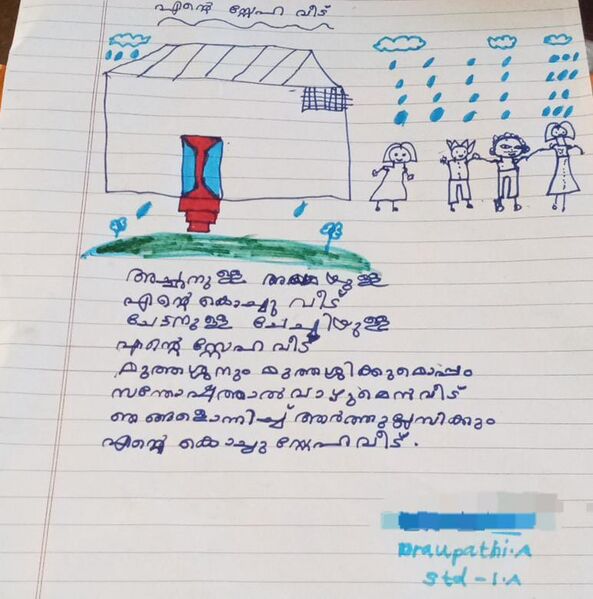 എന്റെ സ്നേഹ വീട്
അച്ഛനുള്ള അമ്മയുള്ള
എന്റെ കൊച്ചു വീട്
ചേട്ടനുള്ള ചേച്ചിയുള്ള
എന്റെ സ്നേഹ വീട്
മുത്തശ്ശനും മുത്തശ്ശിക്കുമൊപ്പം
സന്തോഷത്താൽ വാഴുമെൻ വീട്
ഞങ്ങളൊന്നിച്ച് ആർത്തുല്ലസിക്കും
എന്റെ കൊച്ചു സ്നേഹ വീട്.
Draupathi.A
Std - I.A